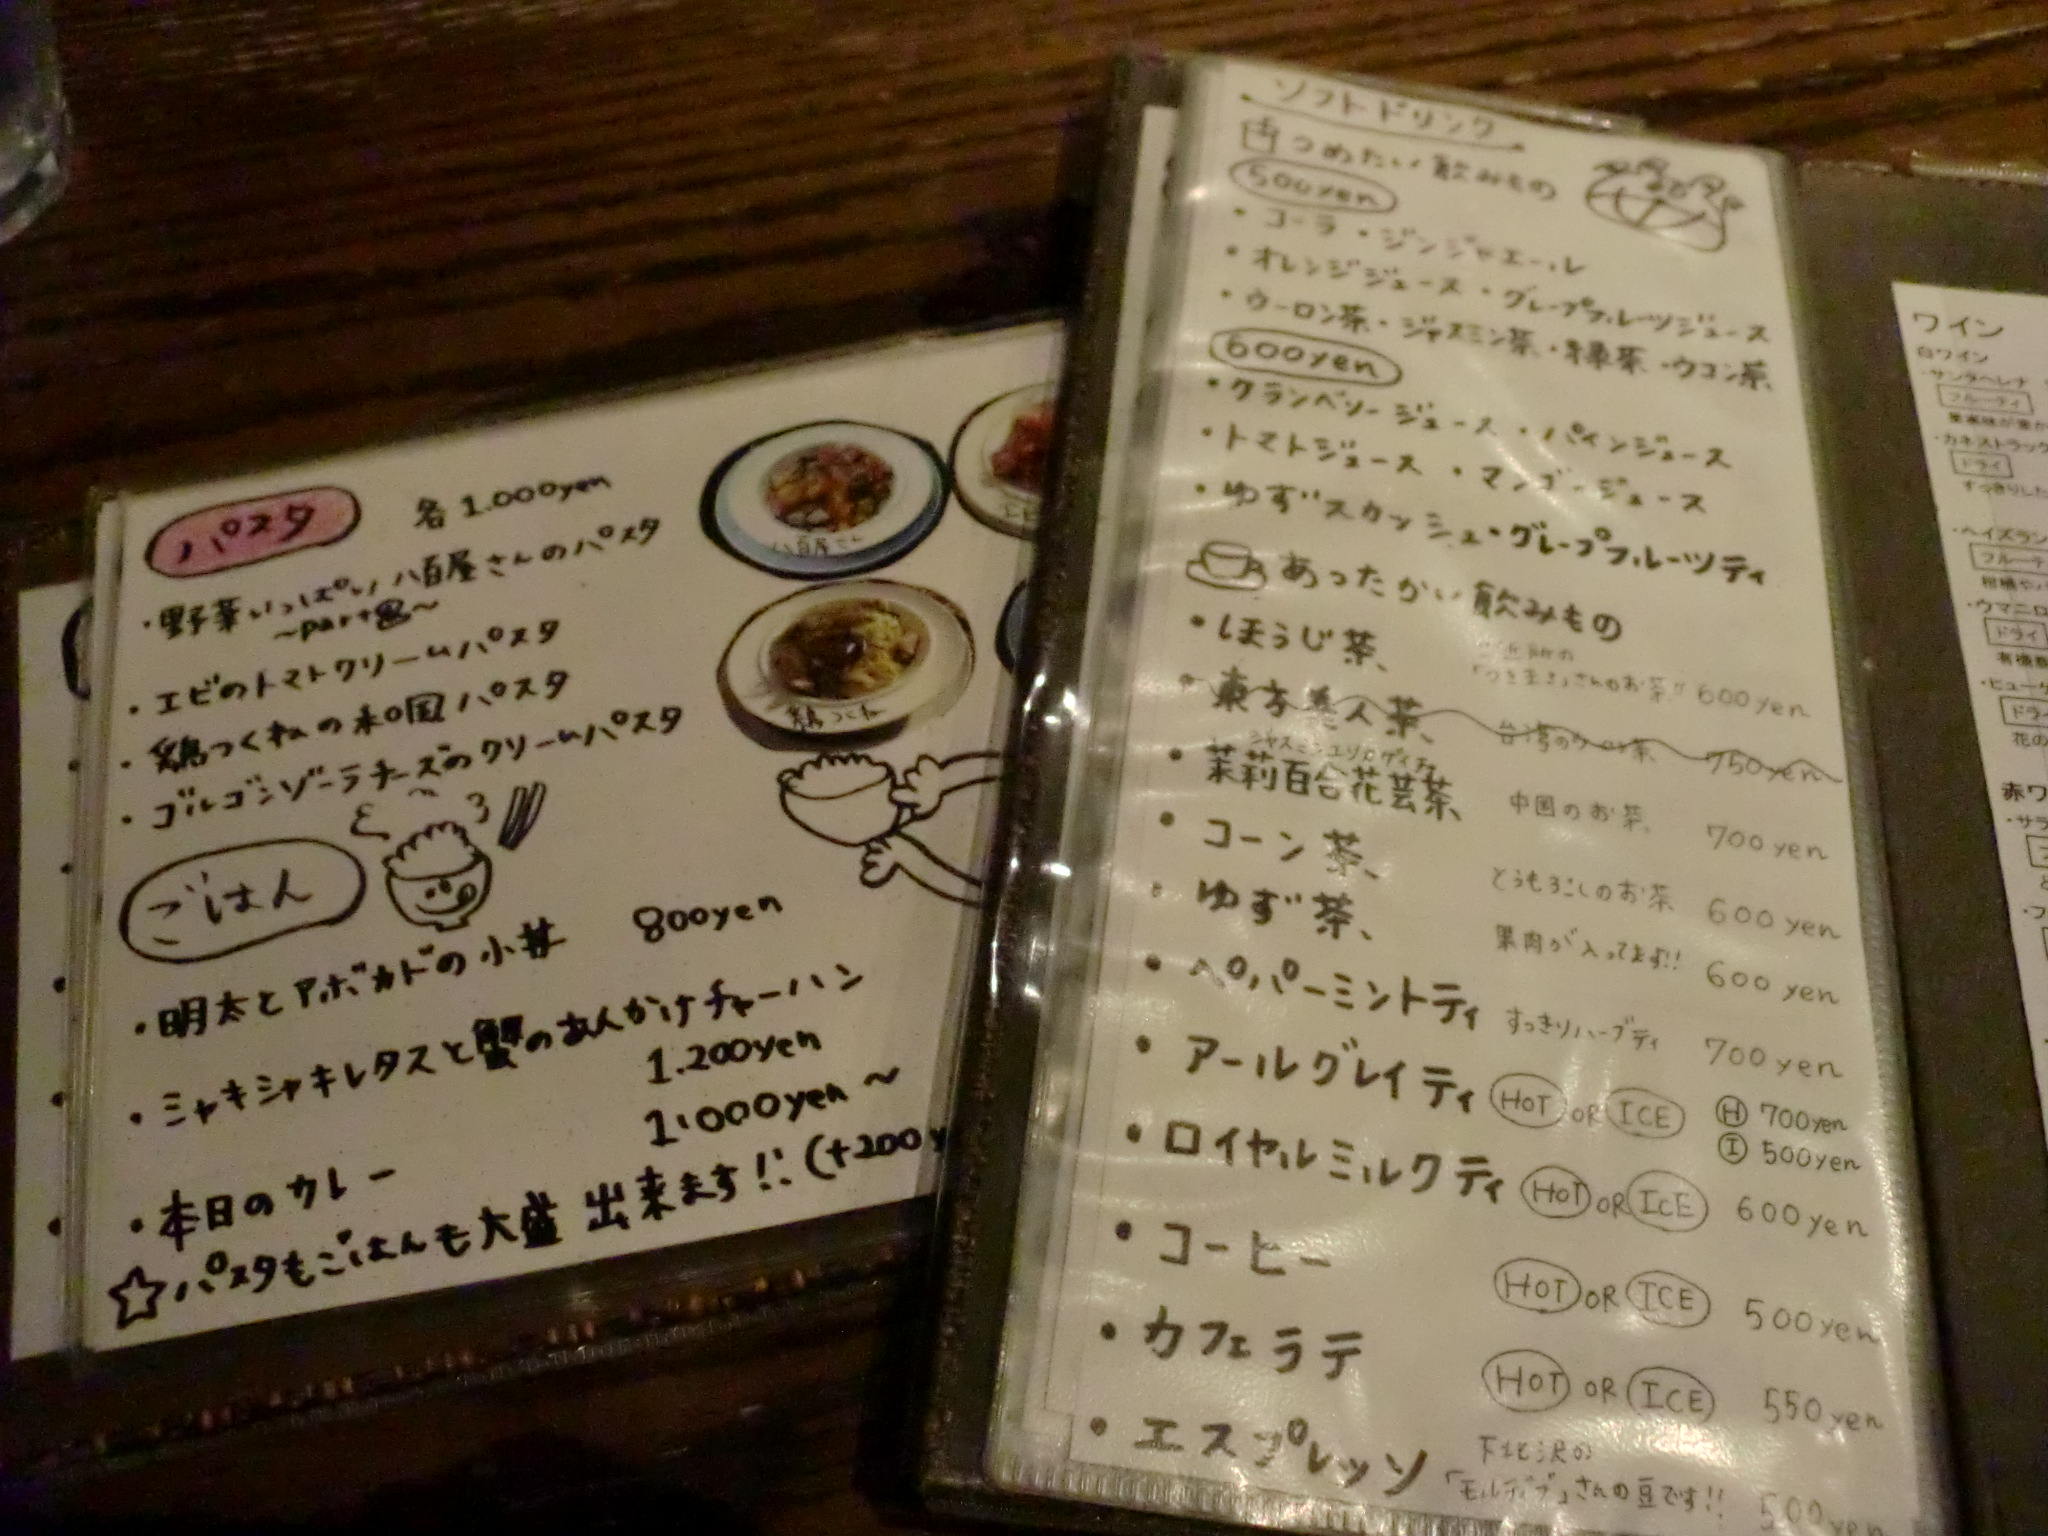 パスタ 各1.000yen
・野菜いっぱい 八百屋さんのパスタ
・エビのトマトクリームパスタ
・鶏つくねの和風パスタ
・ゴルゴンゾーラチーズのクリームパスタ
八百屋さん
鶏つくね
ごはん
・明太とアボカドの小丼 800yen
・シャキシャキレタスと蟹のあんかけチャーハン
1.200yen
・本日のカレー 1.000yen〜
☆パスタもごはんも大盛 出来ます!! (+200y
ソフトドリンク
つめたい飲みもの
500yen
・コーラ ・ジンジャエール
・オレンジジュース ・グレープフルーツジュース
・ウーロン茶 ・ジャスミン茶 ・緑茶 ・ウコン茶
600yen
・クランベリージュース ・パインジュース
・トマトジュース ・マンゴージュース
・ゆずスカッシュ ・グレープフルーツティ
あったかい飲みもの
・ほうじ茶、 さんのお茶!! 600yen
・東方美人茶、 台湾のウーロン茶 750yen
・茉莉百合花芸茶、 中国のお茶、 700yen
・コーン茶、 とうもろこしのお茶 600yen
・ゆず茶、 果肉が入ってます!! 600yen
・ペパーミントティ すっきりハーブティ 700yen
・アールグレイティ HOT OR ICE Ⓗ 700yen
Ⓘ 500yen
・ロイヤルミルクティ HOT OR ICE 600yen
・コーヒー HOT OR ICE 500yen
・カフェラテ HOT OR ICE 550yen
・エスプレッソ 下北沢の
「モルディブ」さんの豆です!! 500yen
ワイン
白ワイン
・サンタヘレナ
フルーティ
・カキストラック
ドライ
すっきりした
・ヘイズラン
フルーテ
柑橘や
・ウマニロ
ドライ
・ヒューゲ
ドラ
花の
赤ワ
・サラ